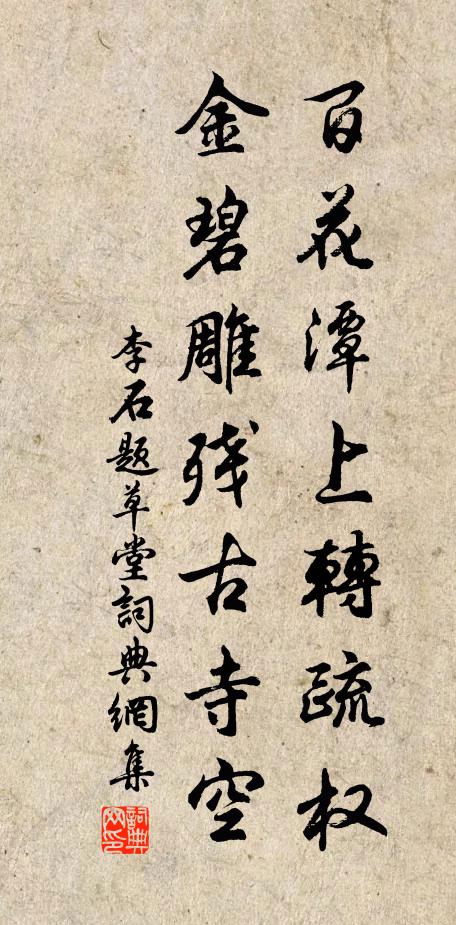 百花潭上轉疏权
金碧雕残古寺空
李石题草堂詞典網集
詞典网印